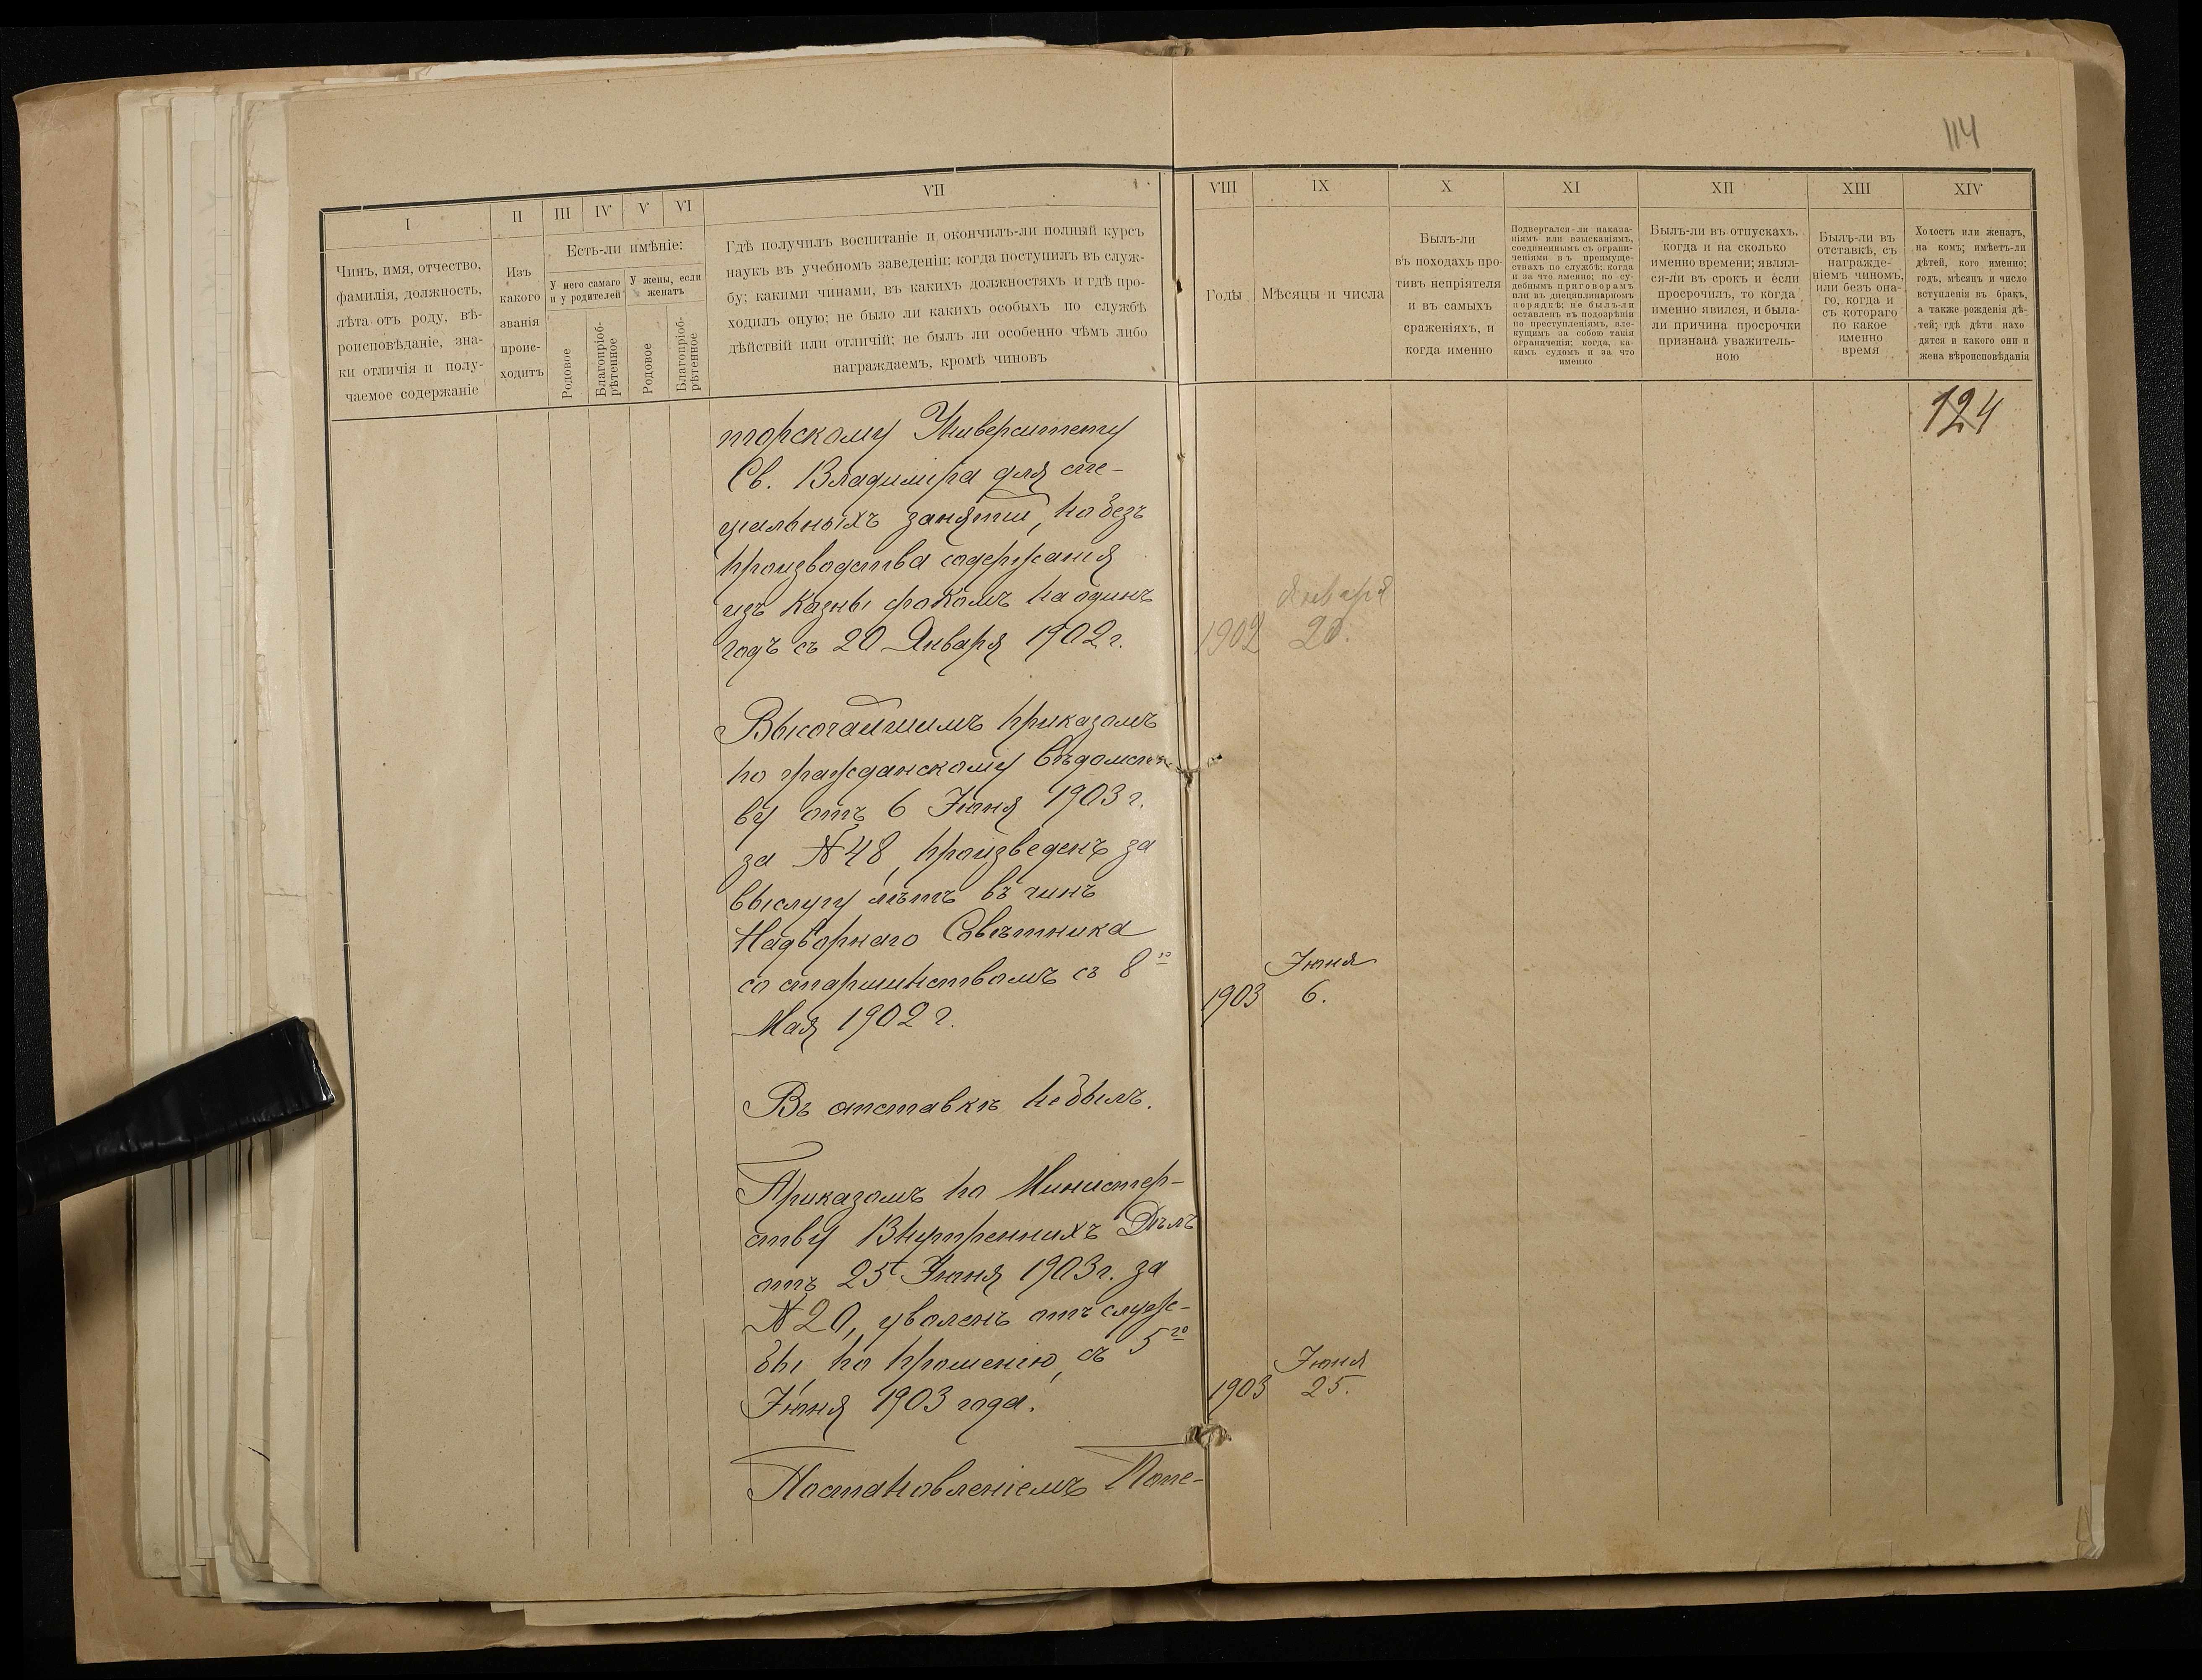 114
I
II
III
IV
V
VI
VII
VIII
IX
X
XI
XII
XIII
XIV
Чинъ, имя, отчество,
фамилія, должность,
лѣта отъ роду, вѣ-
роисповѣданіе, зна-
ки отличія и полу-
чаемое содержаніе
Изъ
какого
званія
проис-
ходитъ
Есть-ли имѣніе:
У него самаго
и у родителей
У жены, если
женатъ
Родовое
Благопріоб-
рѣтенное
Родовое
Благопріоб-
рѣтенное
Гдѣ получилъ воспитаніе и окончилъ-ли полный курсъ
наукъ въ учебномъ заведеніи; когда поступилъ въ служ-
бу; какими чинами, въ какихъ должностяхъ и гдѣ про-
ходилъ оную; не было ли какихъ особыхъ по службѣ
дѣйствій или отличій; не былъ ли особенно чѣмъ либо
награждаемъ, кромѣ чиновъ
Годы
Мѣсяцы и числа
Былъ-ли
въ походахъ про-
тивъ непріятеля
и въ самыхъ
сраженіяхъ, и
когда именно
Подвергался-ли наказа-
ніямъ или взысканіямъ,
соединеннымъ съ ограни-
ченіями въ преимуще-
ствахъ по службѣ; когда
и за что именно; по су-
дебнымъ приговорамъ
или въ дисциплинарномъ
порядкѣ; не былъ-ли
оставленъ въ подозрѣніи
по преступленіямъ, вле-
кущимъ за собою такія
ограниченія; когда, ка-
кимъ судомъ и за что
именно
Былъ-ли въ отпускахъ,
когда и на сколько
именно времени; являл-
ся-ли въ срокъ и если
просрочилъ, то когда
именно явился, и была-
ли причина просрочки
признана уважитель-
ною
Былъ-ли въ
отставкѣ, съ
награжде-
ніемъ чиномъ,
или безъ она-
го, когда и
съ котораго
по какое
именно
время
Холостъ или женатъ,
на комъ; имѣетъ-ли
дѣтей, кого именно;
годъ, мѣсяцъ и число
вступленія въ бракъ,
а также рожденія дѣ-
тей; гдѣ дѣти нахо
дятся и какого они и
жена вѣроисповѣданія
124
торскому Университету
Св. Владиміра для спе-
ціальныхъ занятій, но безъ
производства содержанія
изъ казны срокомъ на одинъ
годъ съ 20 Января 1902 г.
Января
1902 20.
Высочайшимъ приказомъ
по гражданскому вѣдомст
ву отъ 6 Іюня 1903 г.
за № 48, произведенъ за
выслугу лѣтъ въ чинъ
Надворнаго Совѣтника
со старшинствомъ съ 8го
Мая 1902 г.
Іюня
1903 6.
Въ отставкѣ не былъ.
Приказомъ по Министер-
ству Внутреннихъ Дѣлъ
отъ 25 Іюня 1903 г. за
№ 20, уволенъ отъ служ-
бы, по прошенію, съ 5го
Іюня 1903 года.
Іюня
1903 25.
Постановленіемъ Попе-